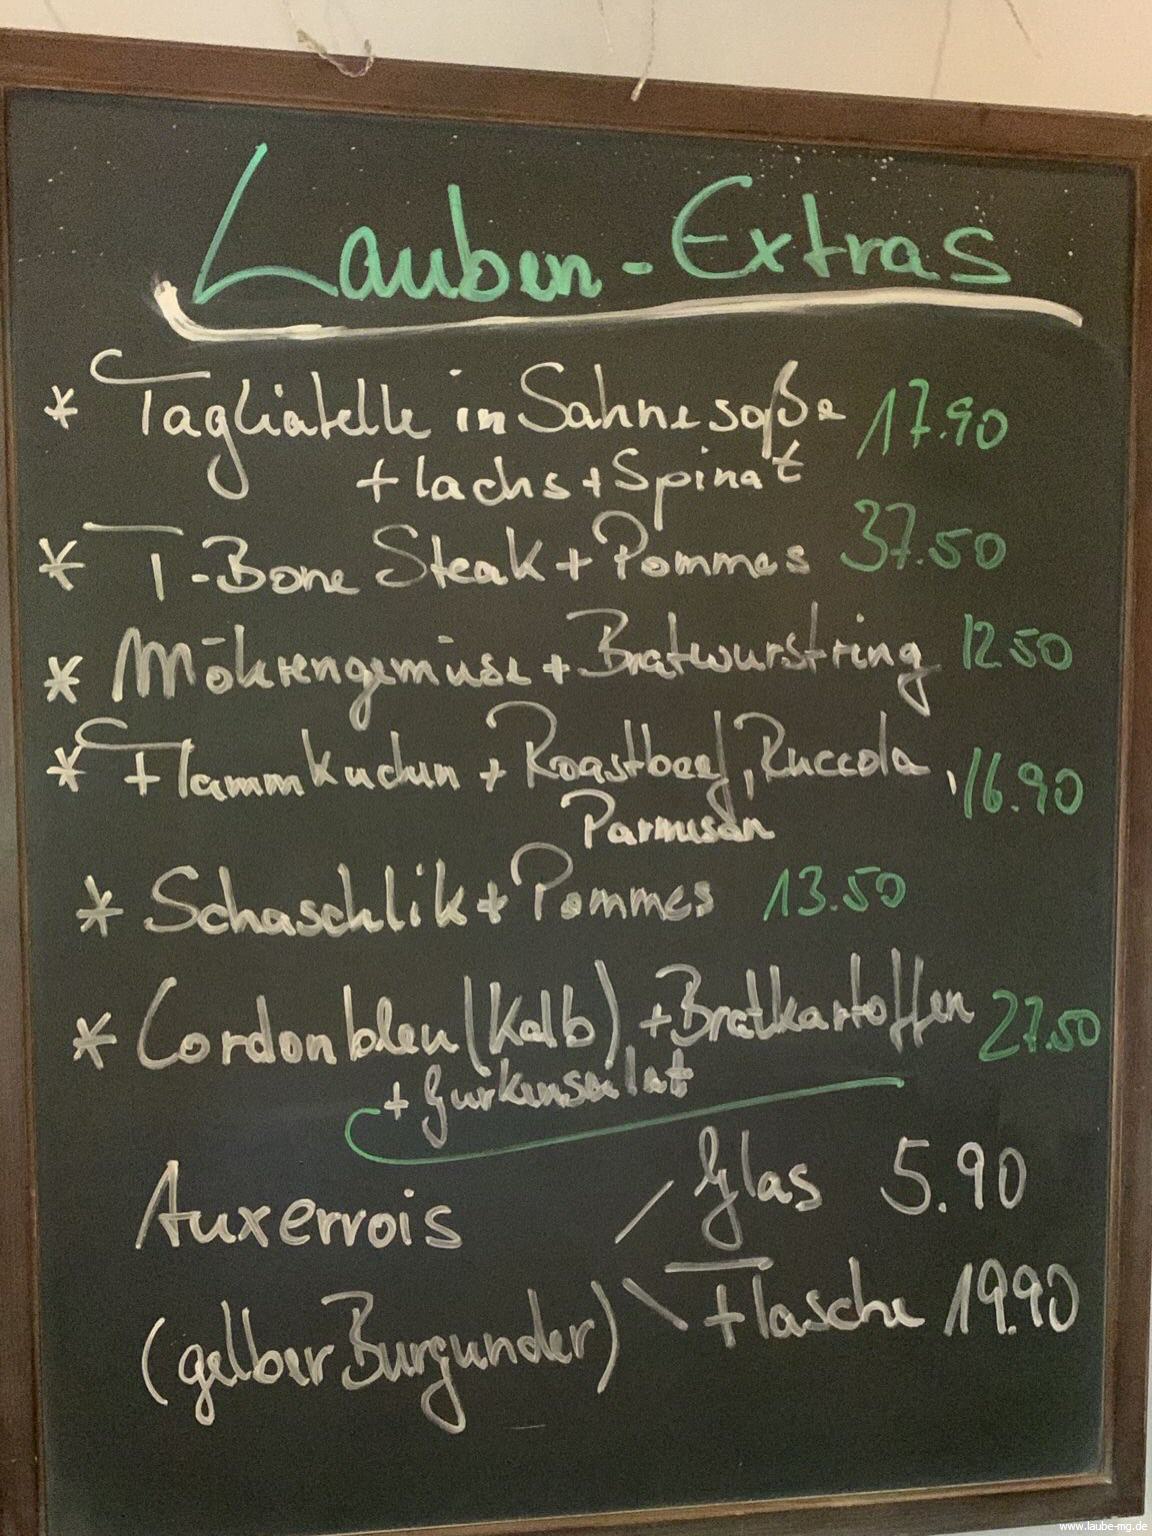 Lauben-Extras
* Tagliatelle in Sahnesoße 17.90
+ lachs + Spinat
* T-Bone Steak + Pommes 37.50
* Möhrengemüse + Bratwurstring 12.50
* Flammkuchen + Roastbeef, Ruccola, 16.90
Parmesan
* Schaschlik + Pommes 13.50
* Cordonbleu (Kalb) + Bratkartoffen 27.50
+ Gurkensalat
Auxerrois / Glas 5.90
(gelber Burgunder) \ Flasche 19.90
www.laube-mg.de